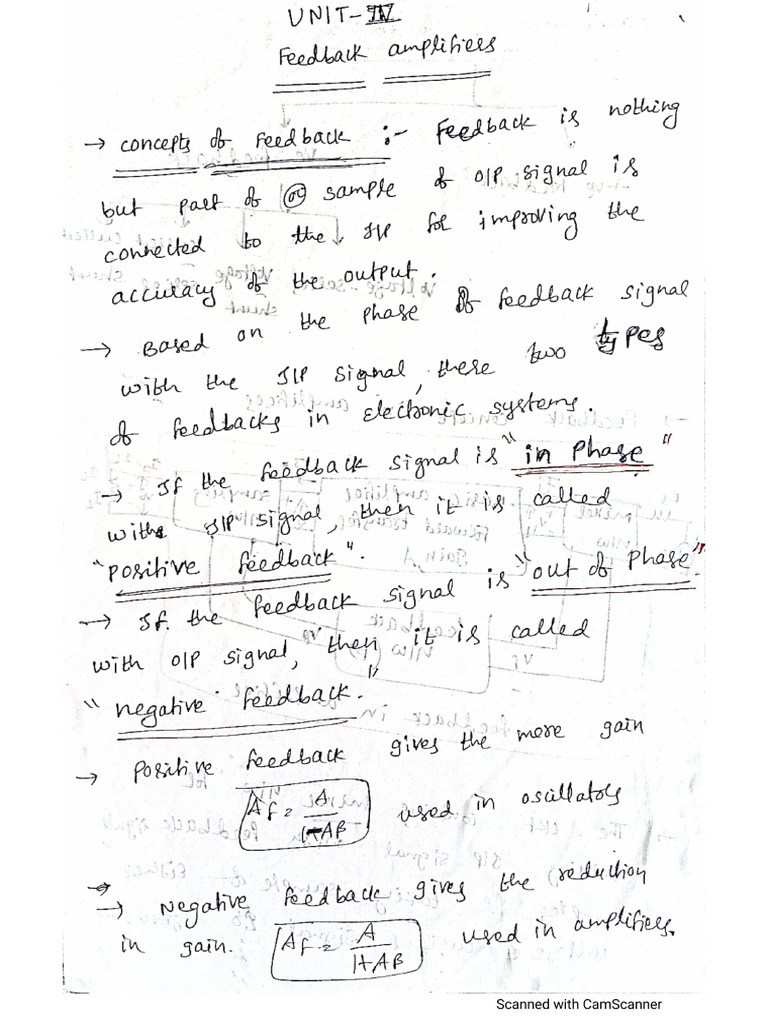 UNIT-IV
Feedback amplifiers
→ concepts of Feedback :- Feedback is nothing
but part of (or) sample of O/P signal is
connected to the I/P for improving the
accuracy of the output.
→ Based on the phase of feedback signal
with the I/P signal, these two types
of feedbacks in electronic systems.
→ If the feedback signal is "in phase"
with I/P signal, then it is called
"positive feedback".
→ If the feedback signal is "out of phase"
with O/P signal, then it is called
"negative feedback."
→ positive feedback gives the more gain
Af = A/(1-Aβ) used in oscillators
→ Negative feedback gives the reduction
in gain. Af = A/(1+Aβ) used in amplifiers.
Scanned with CamScanner